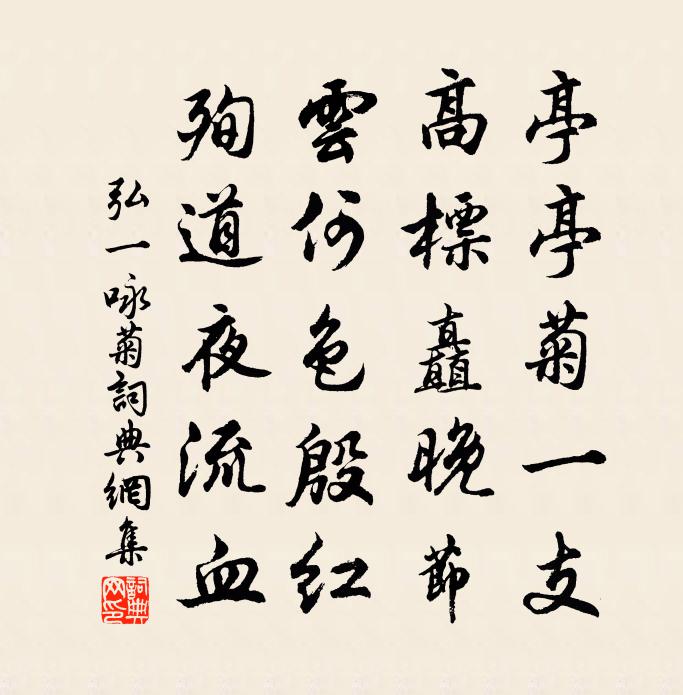 亭亭菊一支
高標矗晚節
雲何色殷紅
殉道夜流血
弘一咏菊詞典網集
詞典網印